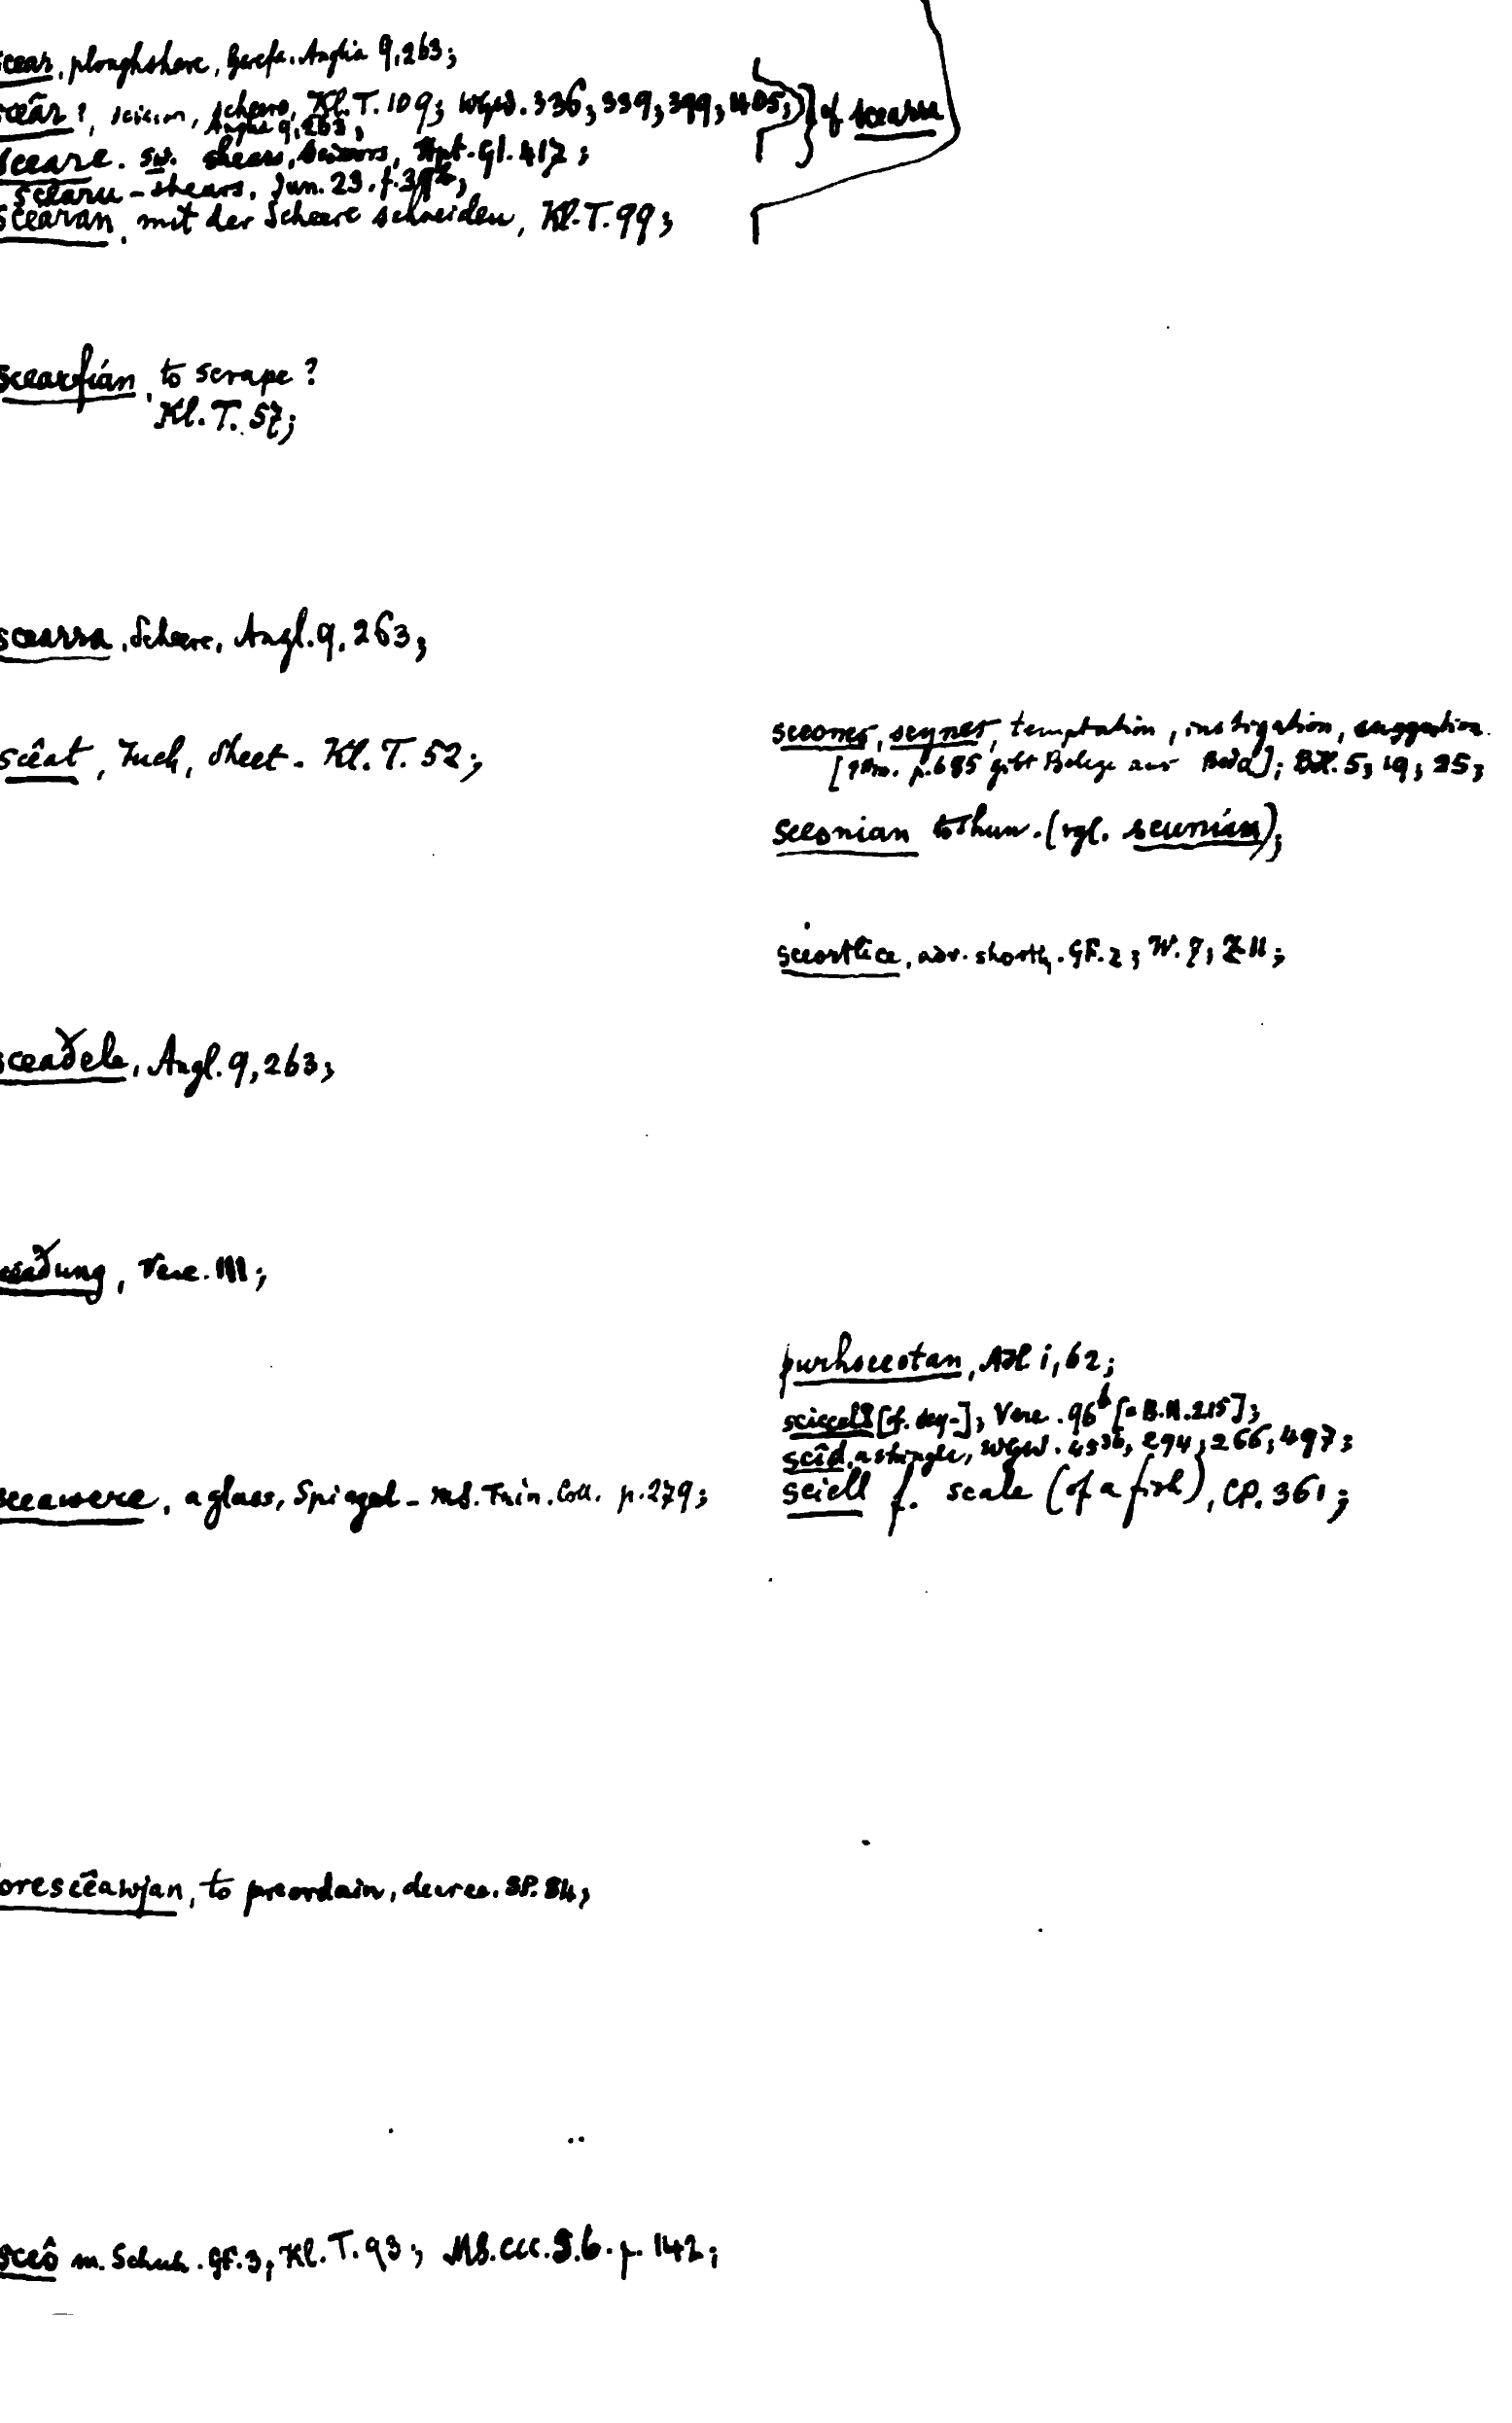 scear, ploughshare, Gerefa. Anglia 9, 263;
sceâr?, scheere, Kl. T. 109; WgW. 336; 339; 399; 405; } cf scearra
Anglia 9, 263;
sceare. sw. shears, scissors, Hpt. Gl. 417;
scearu - shears. Jun. 23. f.
scearan, mit der Scheere schneiden, Kl. T. 99;
scearfian, to scrape?
Kl. T. 57;
scearra, Scheere, Angl. 9, 263;
scêat, Tuch, sheet. Kl. T. 52;
sceaðele, Angl. 9, 263;
sceaðung, Verc. 111;
sceawere, a glass, Spiegel - MS. Trin. Coll. p. 279;
forescêawjan, to preordain, decree. SP. 84;
sceô m. Schuh. GF. 3; Kl. T. 93; MS. CCC. S. 6. p. 142;
sceones, scynes, temptation, instigation, suggestion.
p. 685 gibt Belege aus Beda]; BH. 5; 19; 25;
sceonian to shun. (vgl. scunian);
sceortlice, adv. shortly. GF. 2; W. 7; Z 11;
þurhsceotan, ÆH i, 62;
Verc. 96b [= B.H. 215];
scîd, a shingle, WgW. 294; 266; 497;
sciell f. scale (of a fish), CP. 361;